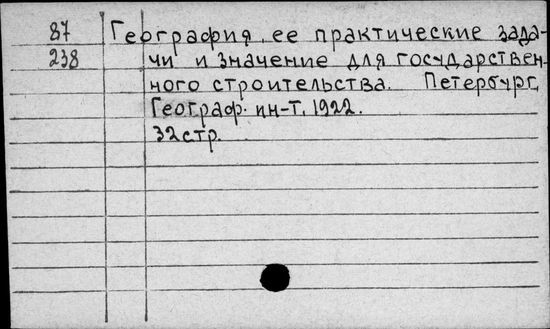 87 География, ее практические зада-
238 чи и значение для государствен-
ного строительства. Петербург,
Географ. ин-т, 1922.
32 стр.